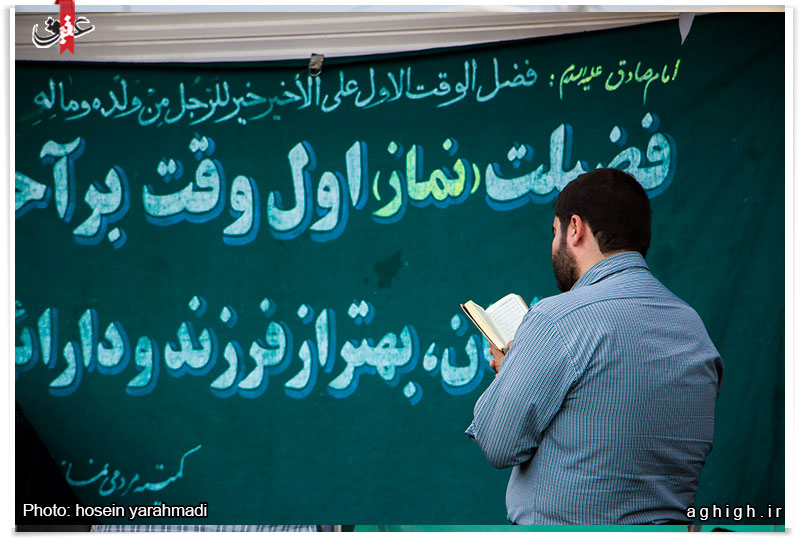 عقیق
امام صادق علیه السلام :
فضل الوقت الاول علی الأخیر خیر للرَّجُل مِن ولدِه و مالِهِ
فضیلت (نماز) اول وقت بر آخ
ن، بهتر از فرزند و دارائ
کمیته مردمی نماز
Photo: hosein yarahmadi
aghigh.ir